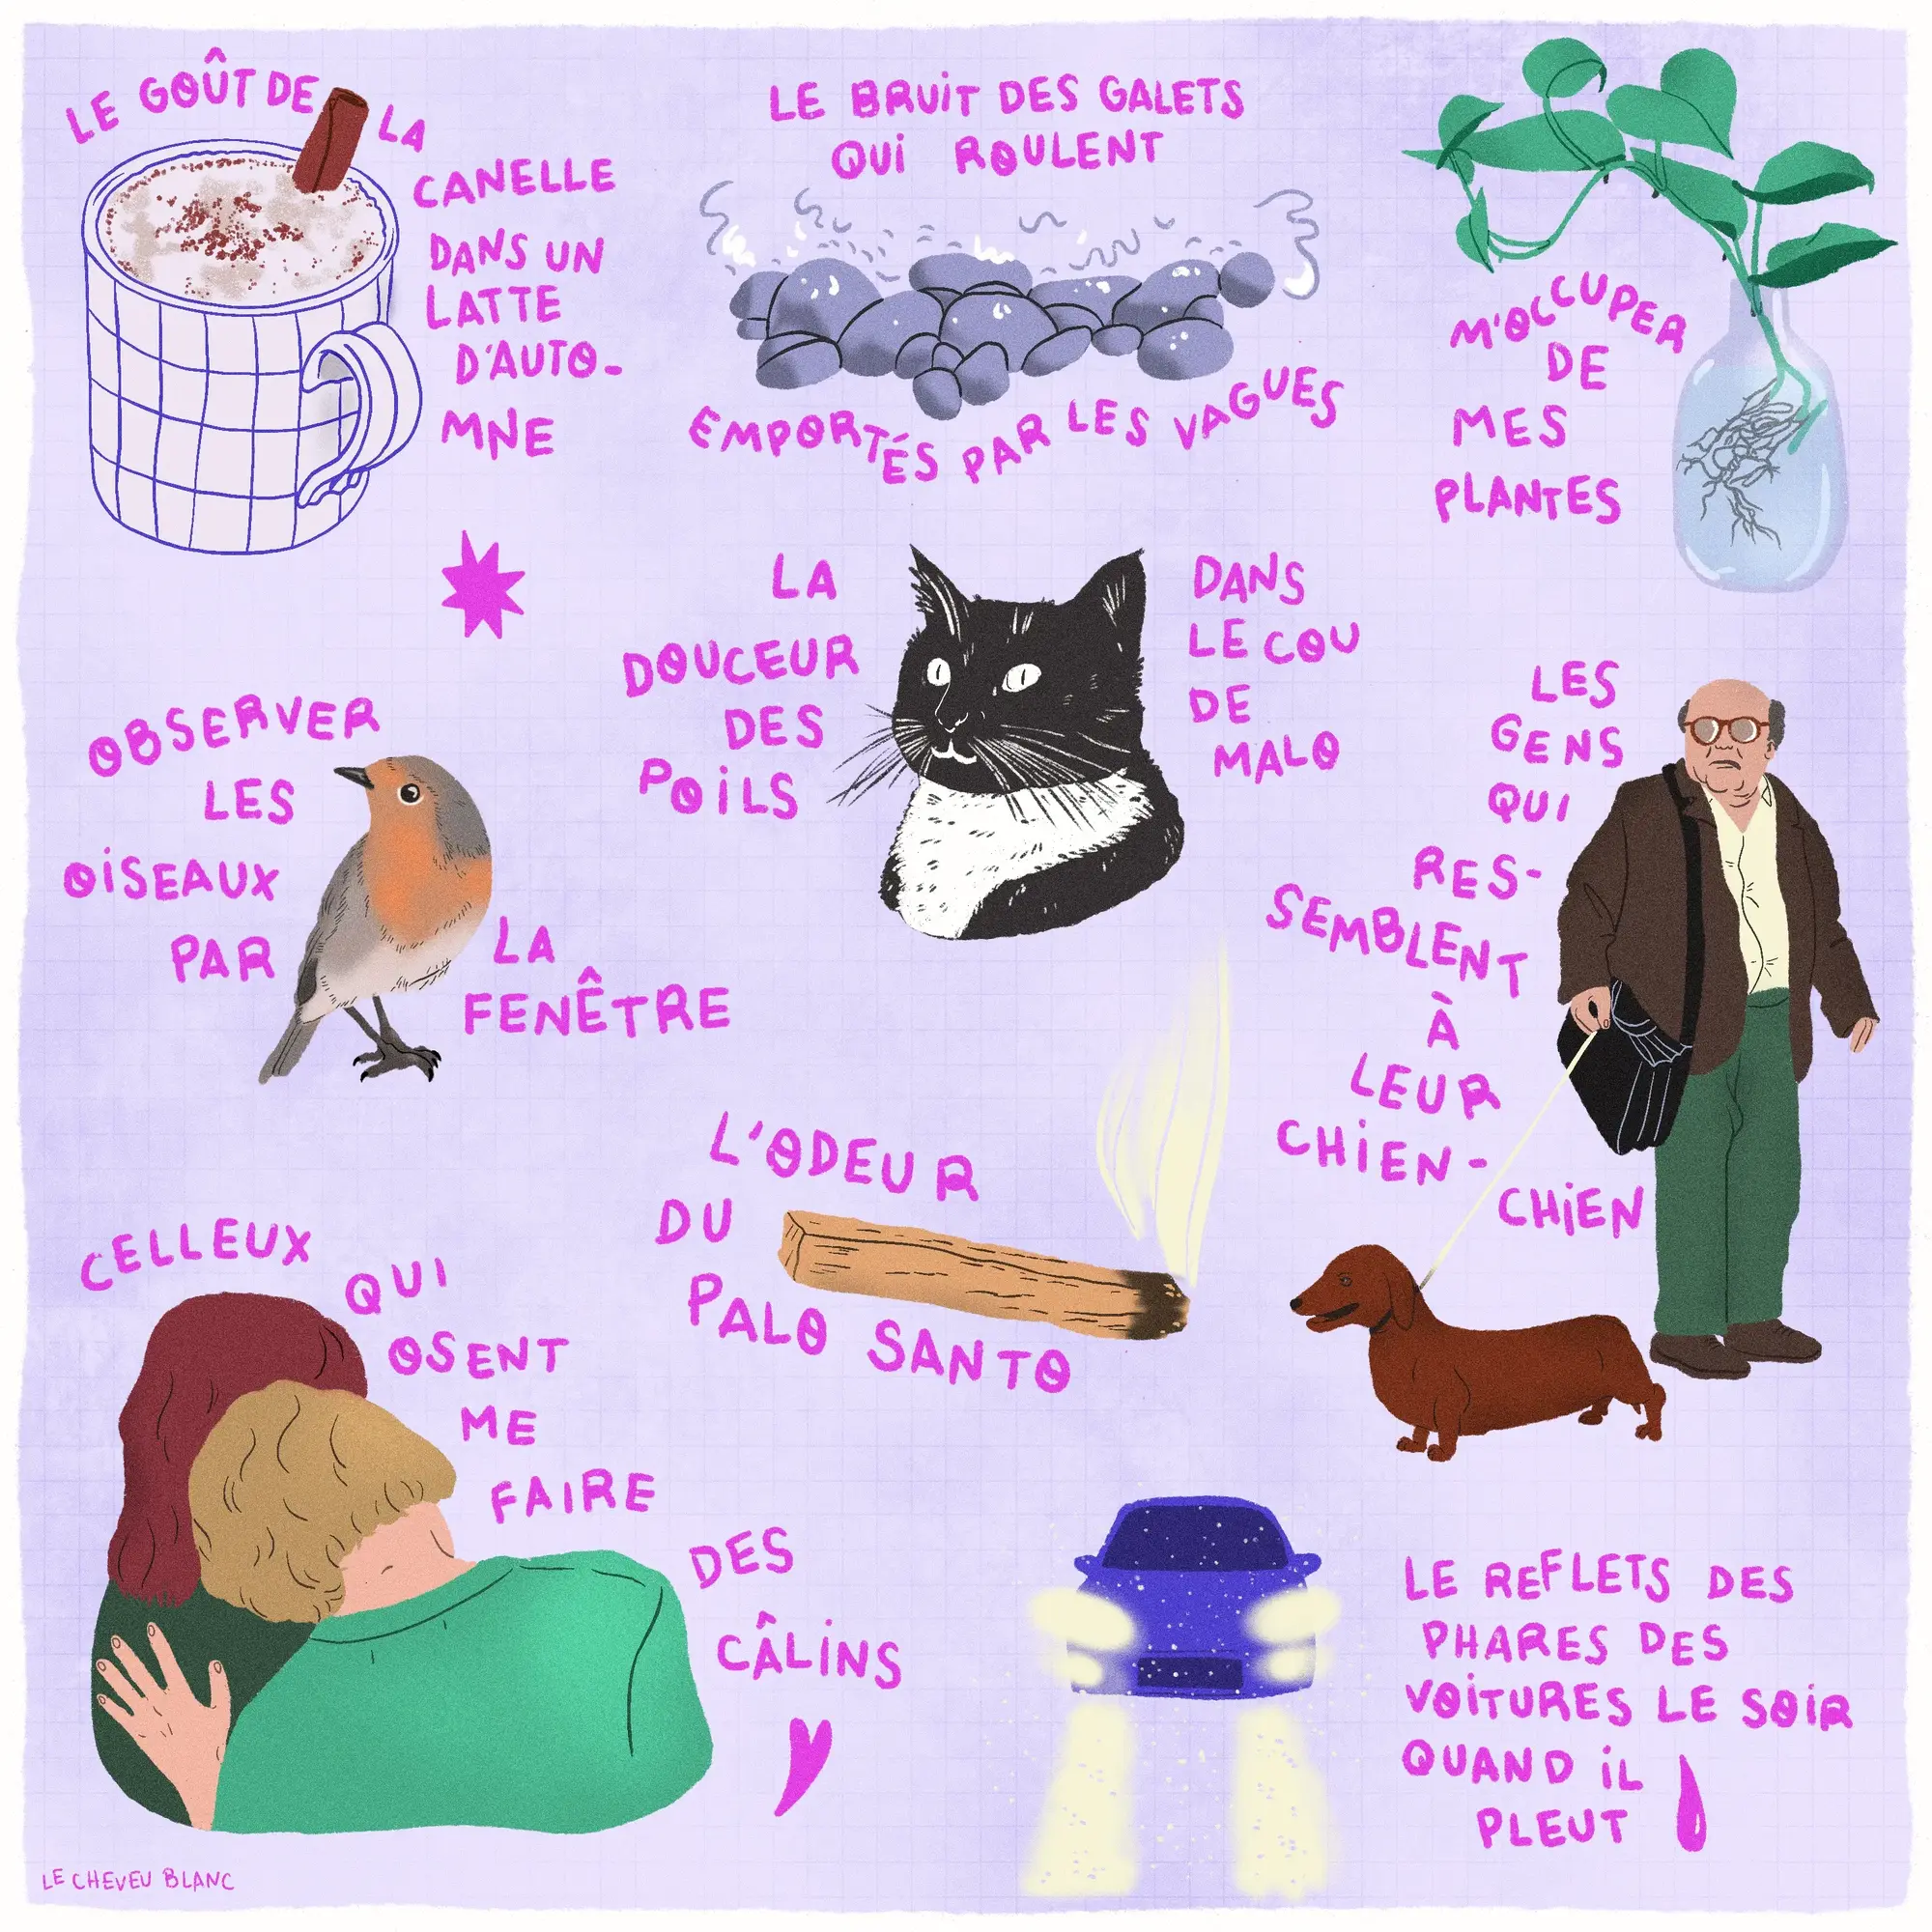 LE GOÛT DE LA
CANELLE
DANS UN
LATTE
D'AUTO-
MNE
LE BRUIT DES GALETS
QUI ROULENT
EMPORTÉS PAR LES VAGUES
M'OCCUPER
DE
MES
PLANTES
LA
DOUCEUR
DES
POILS
DANS
LE COU
DE
MALO
OBSERVER
LES
OISEAUX
PAR
LA
FENÊTRE
LES
GENS
QUI
RES-
SEMBLENT
À
LEUR
CHIEN-
CHIEN
L'ODEUR
DU
PALO SANTO
CELLEUX
QUI
OSENT
ME
FAIRE
DES
CÂLINS
LE REFLETS DES
PHARES DES
VOITURES LE SOIR
QUAND IL
PLEUT
LE CHEVEU BLANC